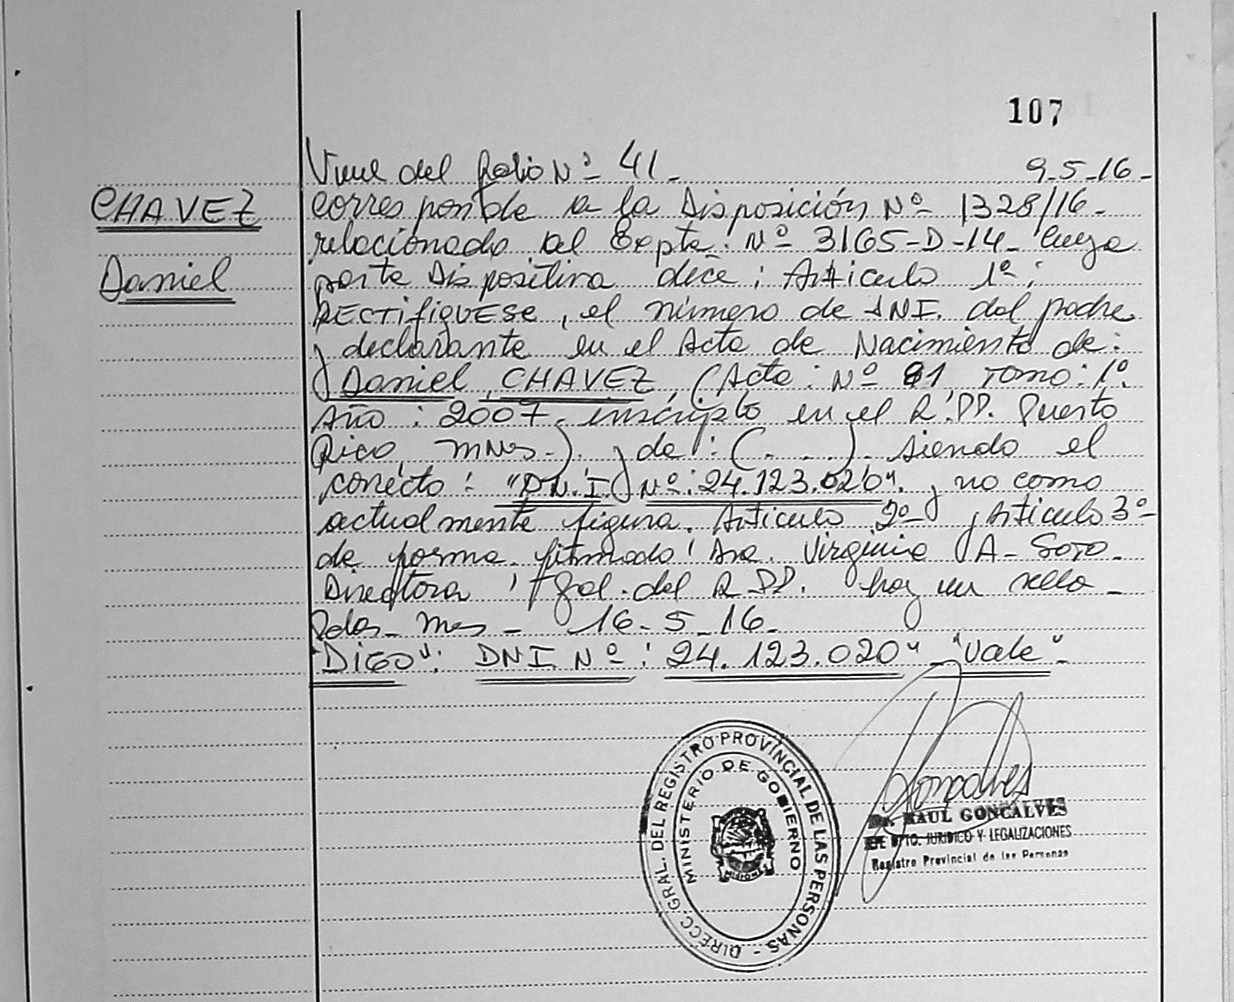 107
Viene del folio Nº 41_ 9_5_16_
CHAVEZ
Daniel
corresponde a la Disposición Nº 1328/16_
relacionado al Expte. Nº 3165-D-14_ cuya
parte Dispositiva dice: Artículo 1º:
RECTIFIQUESE, el número de DNI. del padre
y declarante en el Acta de Nacimiento de:
Daniel CHAVEZ, (Acta: Nº 91 Tomo: 1º.
Año: 2007, inscripto en el R.PP. Puerto
Rico, Mnes_). y de: (. . .). siendo el
correcto: "D.N.I. Nº: 24.123.020". y no como
actualmente figura. Artículo 2º y Artículo 3º_
de forma. firmado: Dra. Virginia A_ Soto_
Directora Gral. del R.PP. hay un sello_
Pdas_ Mnes_ 16_5_16_
"DIGO": DNI Nº: 24.123.020" "Vale"_
DIRECC. GRAL. DEL REGISTRO PROVINCIAL DE LAS PERSONAS -
MINISTERIO DE GOBIERNO
MISIONES
Goncalves
Dr. RAUL GONCALVES
JEFE DPTO. JURIDICO Y LEGALIZACIONES
Registro Provincial de las Personas